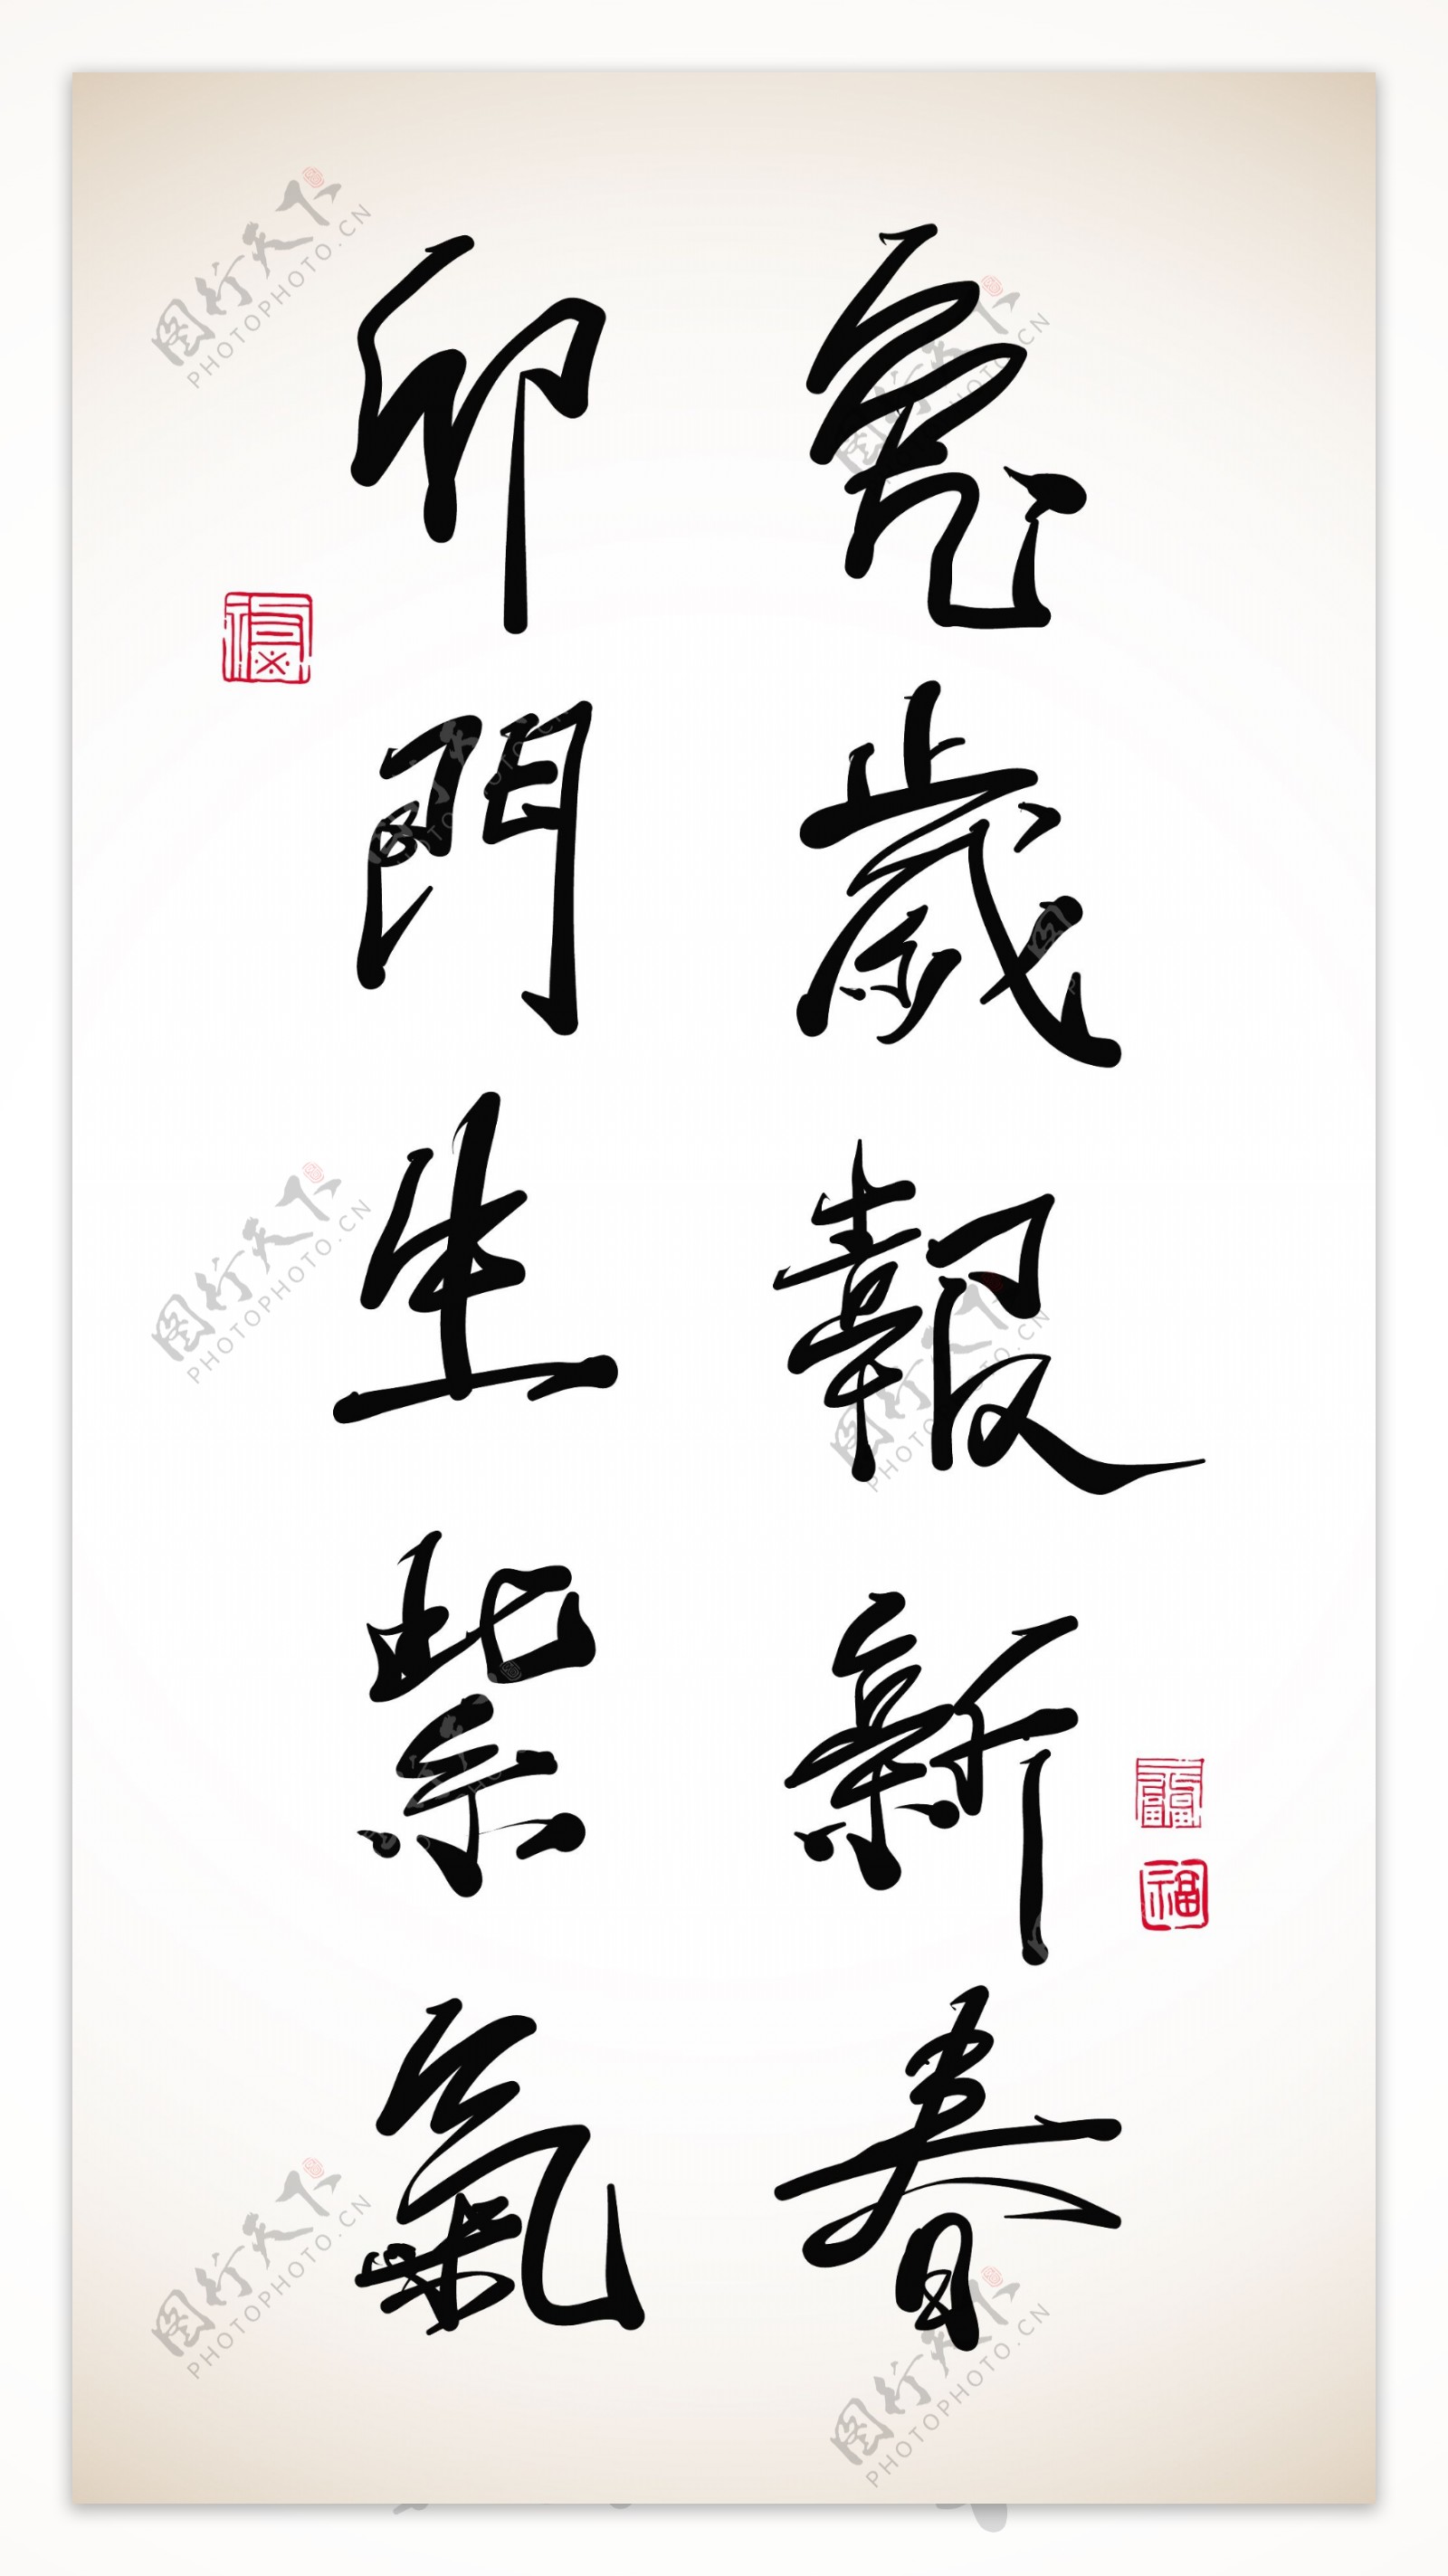 兔歲報新春
卯門生紫氣
福
图行天下
PHOTOPHOTO.CN
图行天下
PHOTOPHOTO.CN
图行天下
PHOTOPHOTO.CN
图行天下
PHOTOPHOTO.CN
图行天下
PHOTOPHOTO.CN